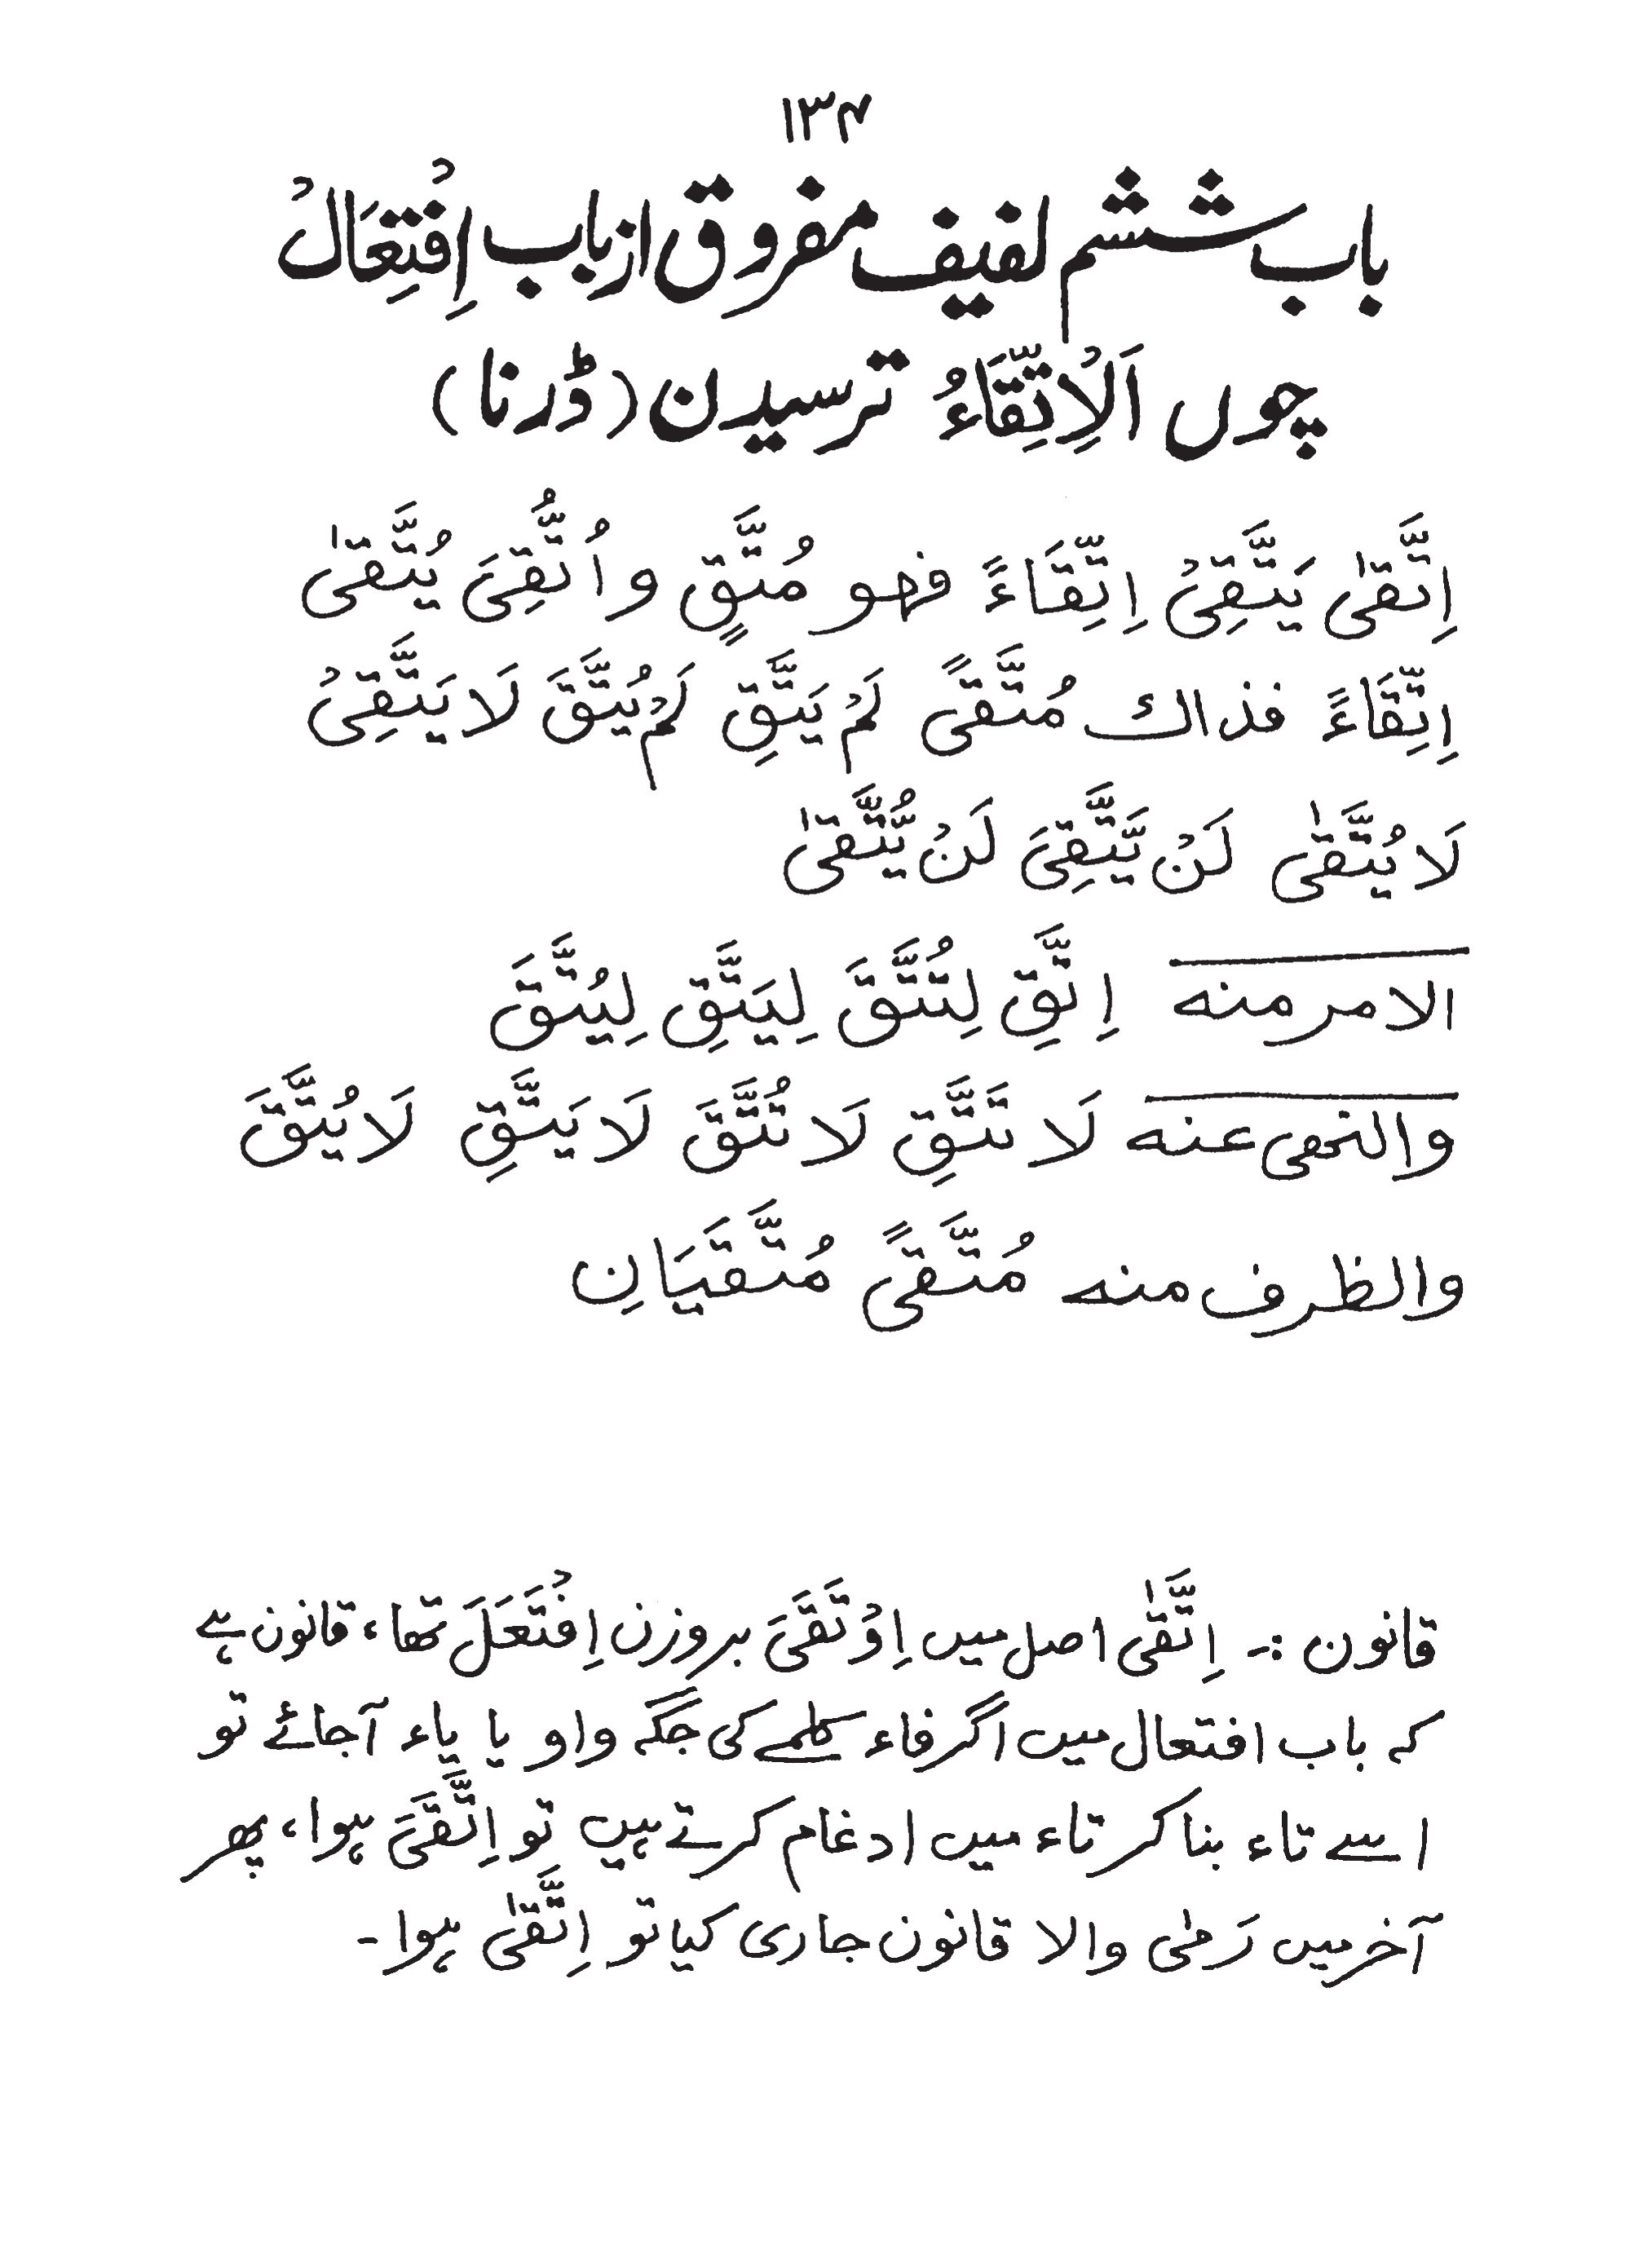 ۱۳۴
باب ششم لفیف مفروق از باب اِفْتِعَالْ
چوں اَلْاِتِّقَاءُ ترسیدن (ڈرنا)
اِتَّقٰى يَتَّقِىْ اِتِّقَاءً فهو مُتَّقٍ و اُتُّقِىَ يُتَّقٰى
اِتِّقَاءً فذاك مُتَّقًى لَمْ يَتَّقِ لَمْ يُتَّقَ لَا يَتَّقِىْ
لَا يُتَّقٰى لَنْ يَّتَّقِىَ لَنْ يُّتَّقٰى
الامر منه اِتَّقِ لِتُتَّقَ لِيَتَّقِ لِيُتَّقَ
والنهى عنه لَا تَتَّقِ لَا تُتَّقَ لَا يَتَّقِ لَا يُتَّقَ
والظرف منه مُتَّقًى مُتَّقَيَانِ
قانون :- اِتَّقٰى اصل میں اِوْتَقَىَ بروزن اِفْتَعَلَ تھا، قانون ہے
کہ باب افتعال میں اگر فاء کلمے کی جگہ واو یا یاء آجائے تو
اسے تاء بنا کر تاء میں ادغام کرتے ہیں تو اِتَّقَىَ ہوا، پھر
آخر میں رَمٰى والا قانون جاری کیا تو اِتَّقٰى ہوا -